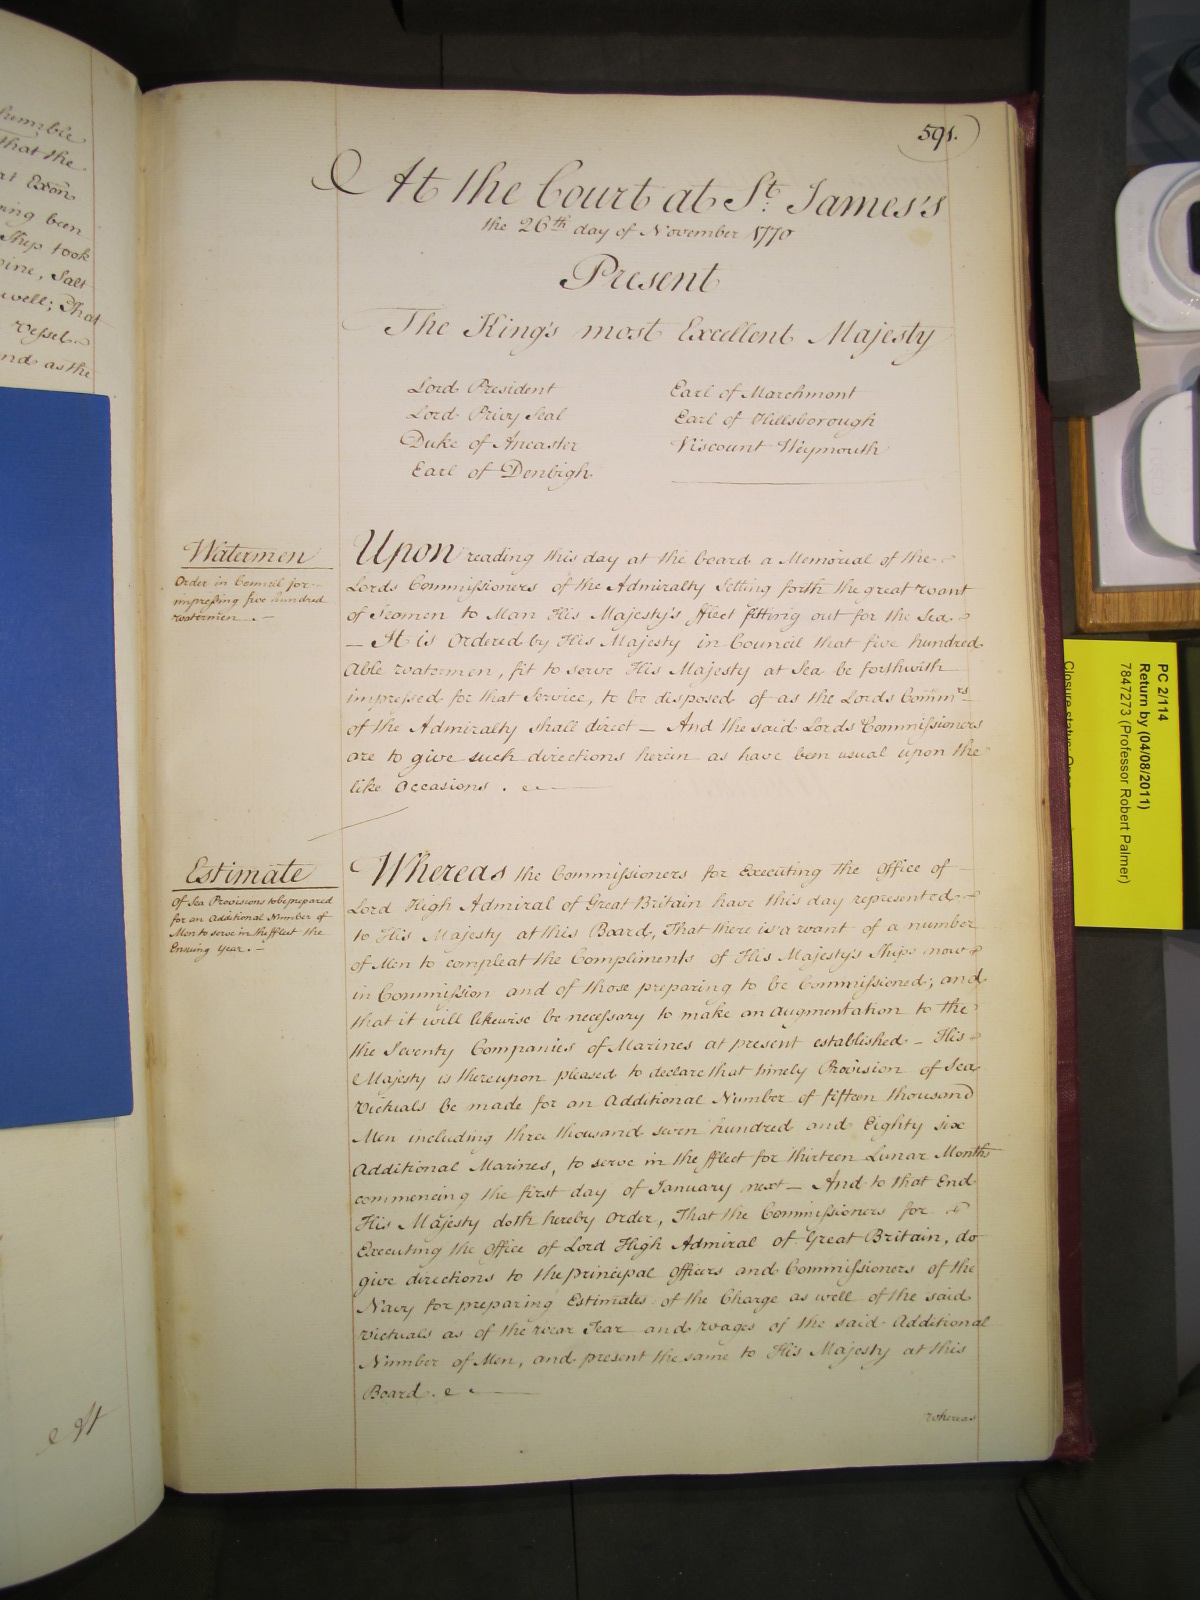 humble
that the
at Exōn
ring been
Ship took
Salt
well; That
Vessel
nd as the
At
591.
At the Court at St. James's
the 26th day of November 1770
Present
The King's most Excellent Majesty
Lord President
Lord Privy Seal
Duke of Ancaster
Earl of Denbigh
Earl of Marchmont
Earl of Hillsborough
Viscount Weymouth
Watermen
Order in Council for
impressing five hundred
watermen. –
Upon reading this day at the board a Memorial of the
Lords Commissioners of the Admiralty Setting forth the great want
of Seamen to Man His Majesty's ffleet fitting out for the Sea
– It is Ordered by His Majesty in Council that five hundred
Able watermen, fit to serve His Majesty at Sea be forthwith
impressed for that Service, to be disposed of as the Lords Commrs
of the Admiralty shall direct – And the said Lords Commissioners
are to give such directions herein as have been usual upon the
like Occasions.
Estimate
Of Sea Provisions to be prepared
for an Additional Number of
Men to serve in the ffleet the
Ensuing Year. –
Whereas the Commissioners for Executing the Office of
Lord High Admiral of Great Britain have this day represented
to His Majesty at this Board, That there is a want of a number
of Men to compleat the Compliments of His Majesty's Ships now
in Commission and of those preparing to be Commissioned; and
that it will likewise be necessary to make an Augmentation to the
the Seventy Companies of Marines at present established – His
Majesty is thereupon pleased to declare that timely Provision of Sea
Victuals be made for an Additional Number of fifteen thousand
Men including three thousand seven hundred and Eighty six
Additional Marines, to serve in the ffleet for thirteen Lunar Months
commencing the first day of January next – And to that End
His Majesty doth hereby Order, That the Commissioners for
Executing the Office of Lord High Admiral of Great Britain, do
give directions to the principal Officers and Commissioners of the
Navy for preparing Estimates of the Charge as well of the said
Victuals as of the wear Tear and wages of the said Additional
Number of Men, and present the same to His Majesty at this
Board.
Whereas
PC 2/114
Return by (04/08/2011)
7847273 (Professor Robert Palmer)
Closure status: Open